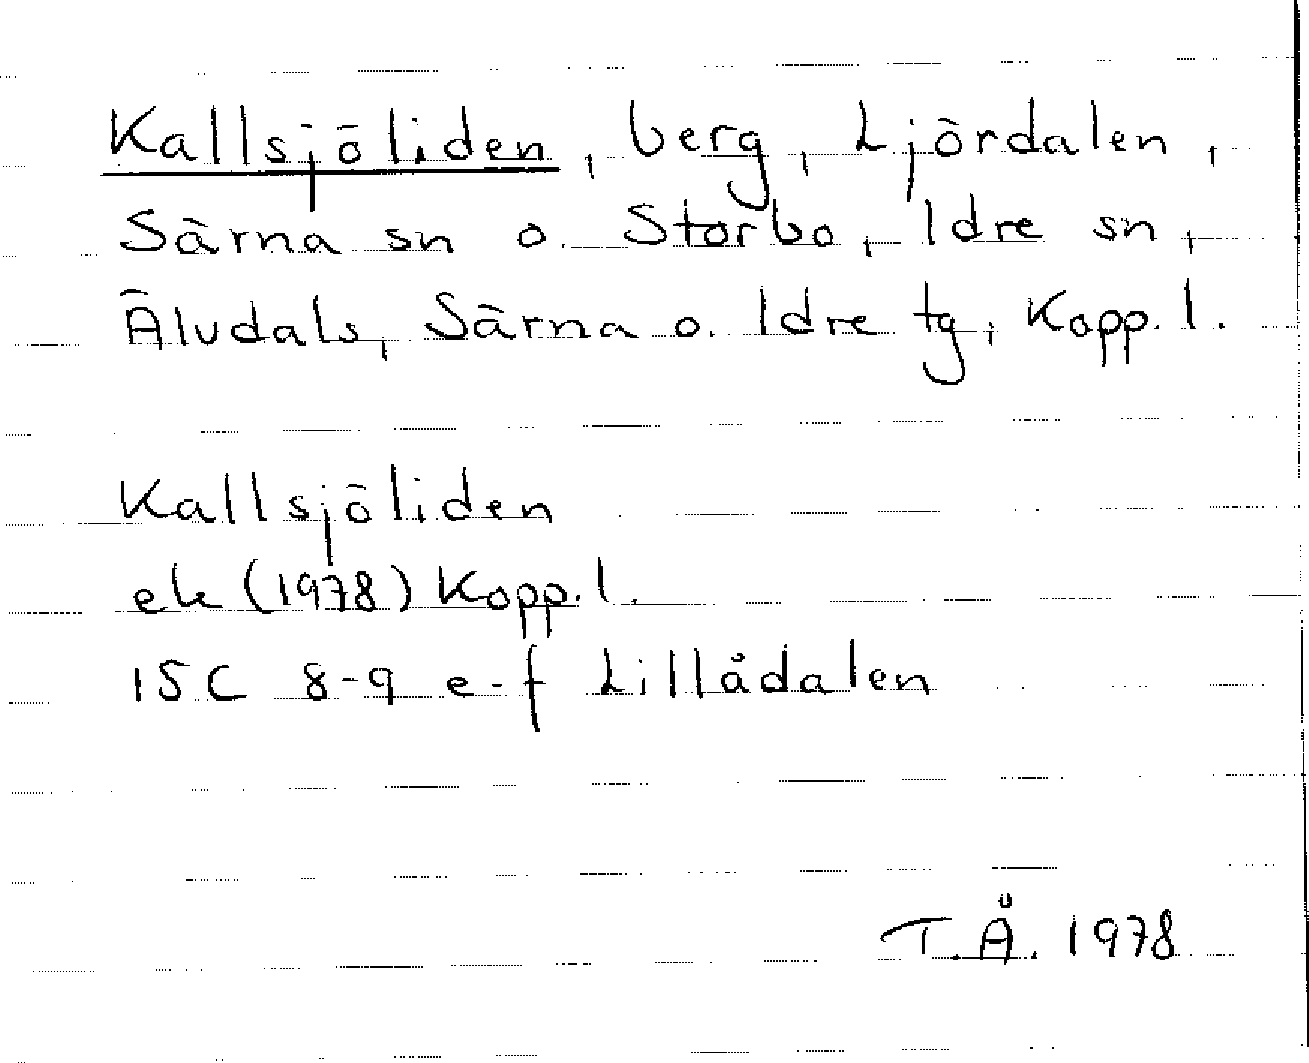 Kallsjöliden, berg, Ljördalen,
Särna sn o. Storbo, Idre sn,
Älvdals, Särna o. Idre tg, Kopp. l.
Kallsjöliden
ek (1978) Kopp. l.
15C 8-9 e-f Lillådalen
T.Å. 1978